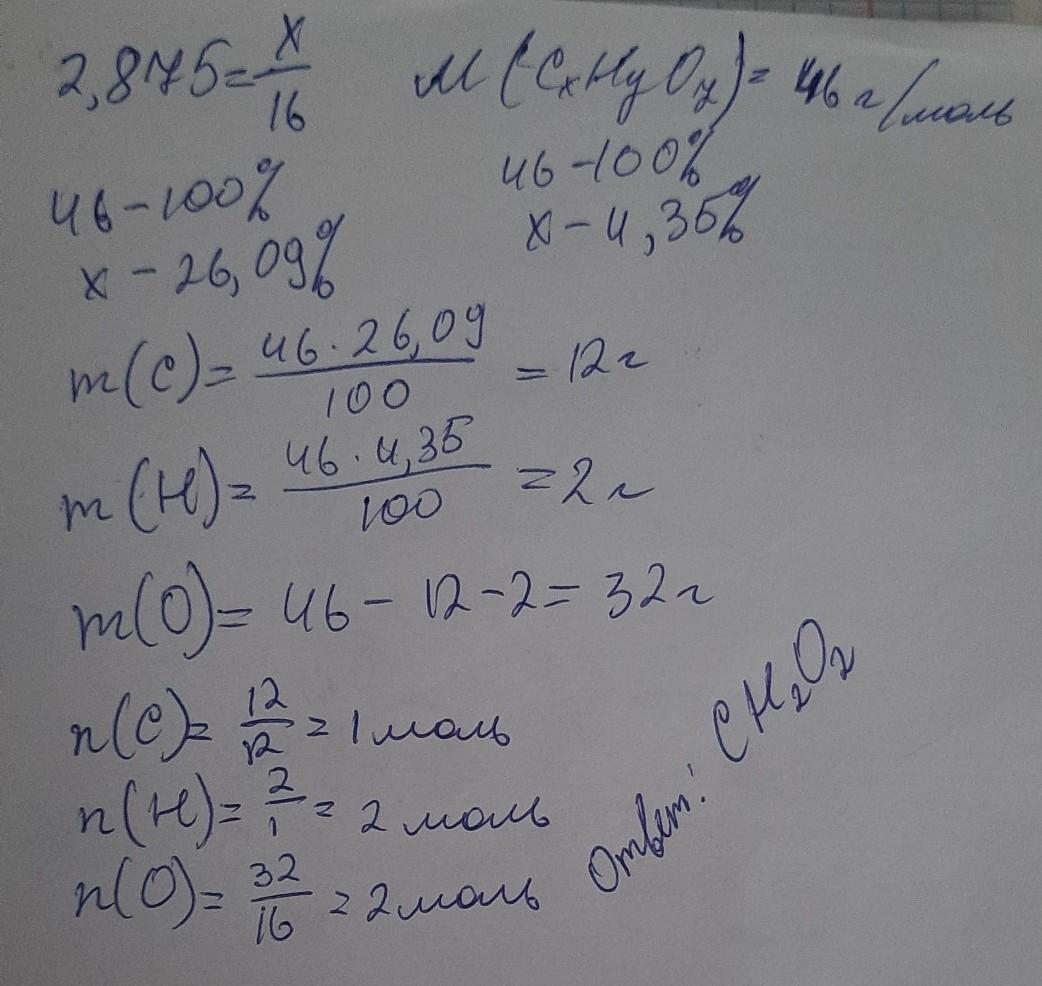 2,875 = x/16   M(CxHyOz) = 46 г/моль
46 - 100%   46 - 100%
x - 26,09%   x - 4,35%
m(C) = 46 · 26,09 / 100 = 12 г
m(H) = 46 · 4,35 / 100 = 2 г
m(O) = 46 - 12 - 2 = 32 г
n(C) = 12/12 = 1 моль
n(H) = 2/1 = 2 моль
n(O) = 32/16 = 2 моль
Ответ: CH₂O₂